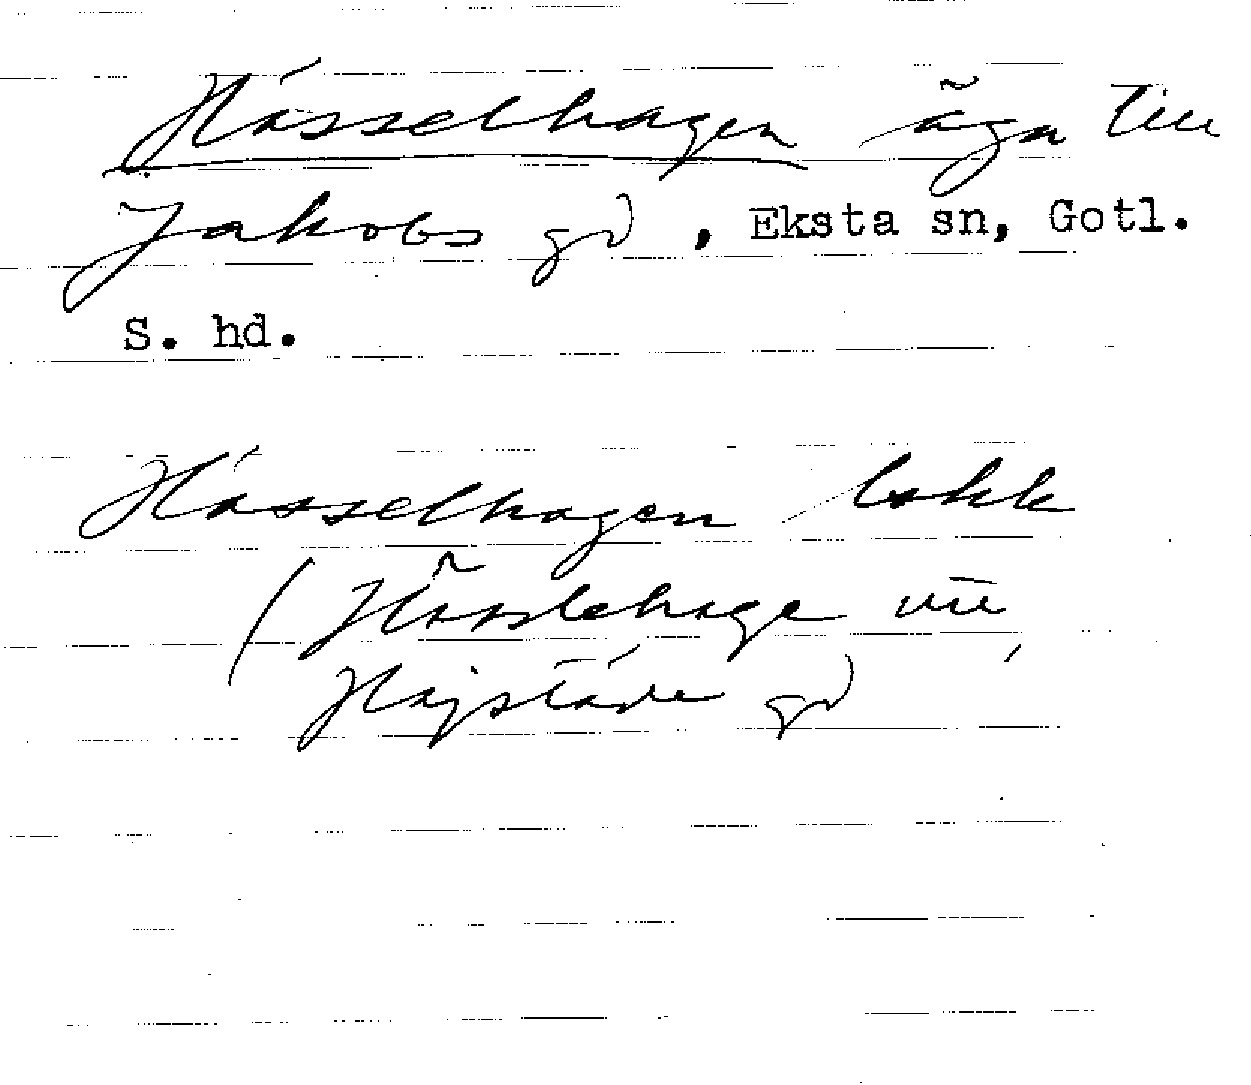 Hässelhagen äga till
Jakobs gd, Eksta sn, Gotl.
S. hd.
Hässelhagen lokk
(Hässlehage vid
Hajstäde gd